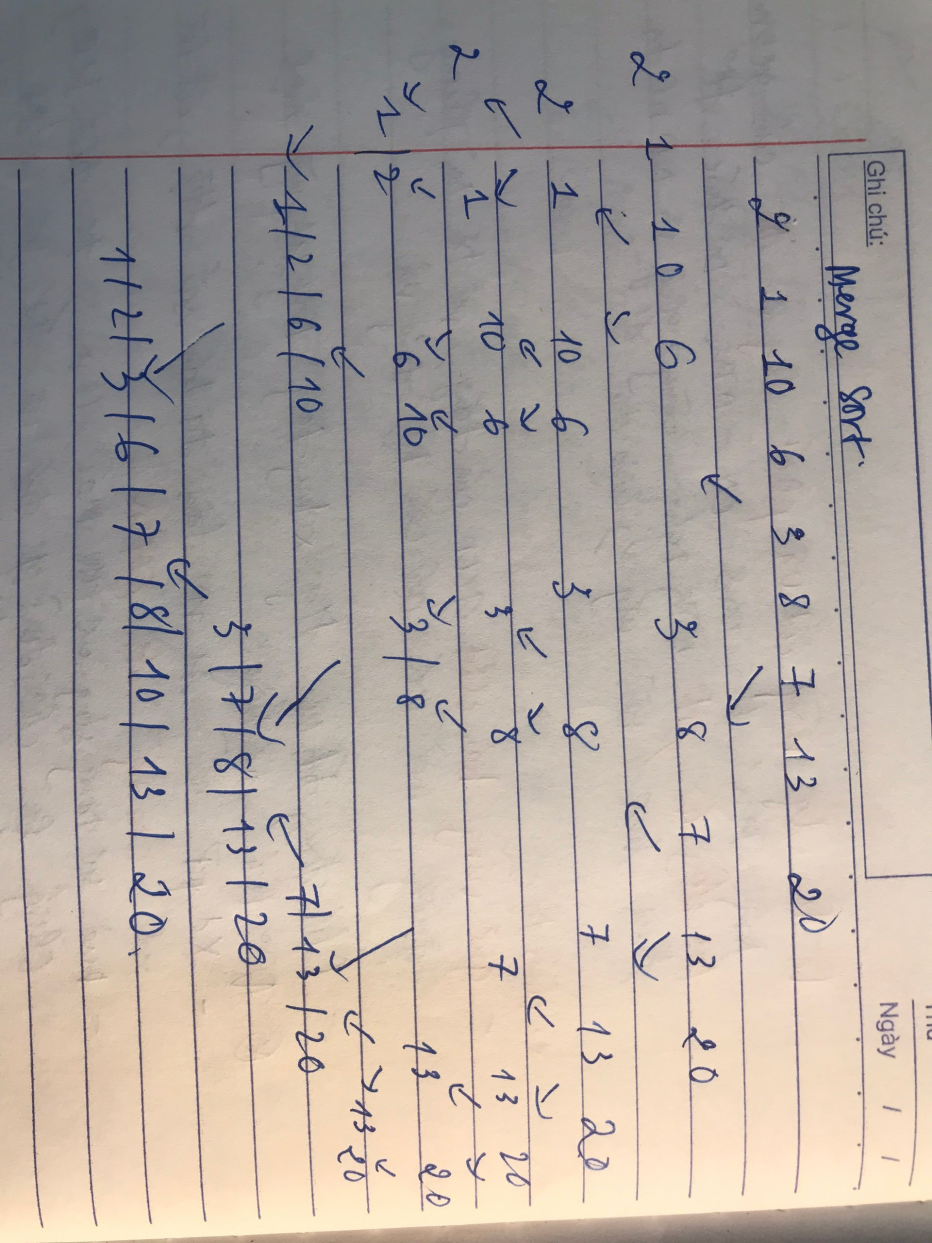 Thứ
Ngày / /
Ghi chú:
Merge Sort.
2 1 10 6 3 8 7 13 20
2 1 10 6 3 8 7 13 20
2 1 10 6 3 8 7 13 20
2 1 10 6 3 8 7 13 20
1 | 2 6 10 3 | 8 13 20
13 20
1 | 2 | 6 | 10 7 | 13 | 20
3 | 7 | 8 | 13 | 20
1 | 2 | 3 | 6 | 7 | 8 | 10 | 13 | 20.